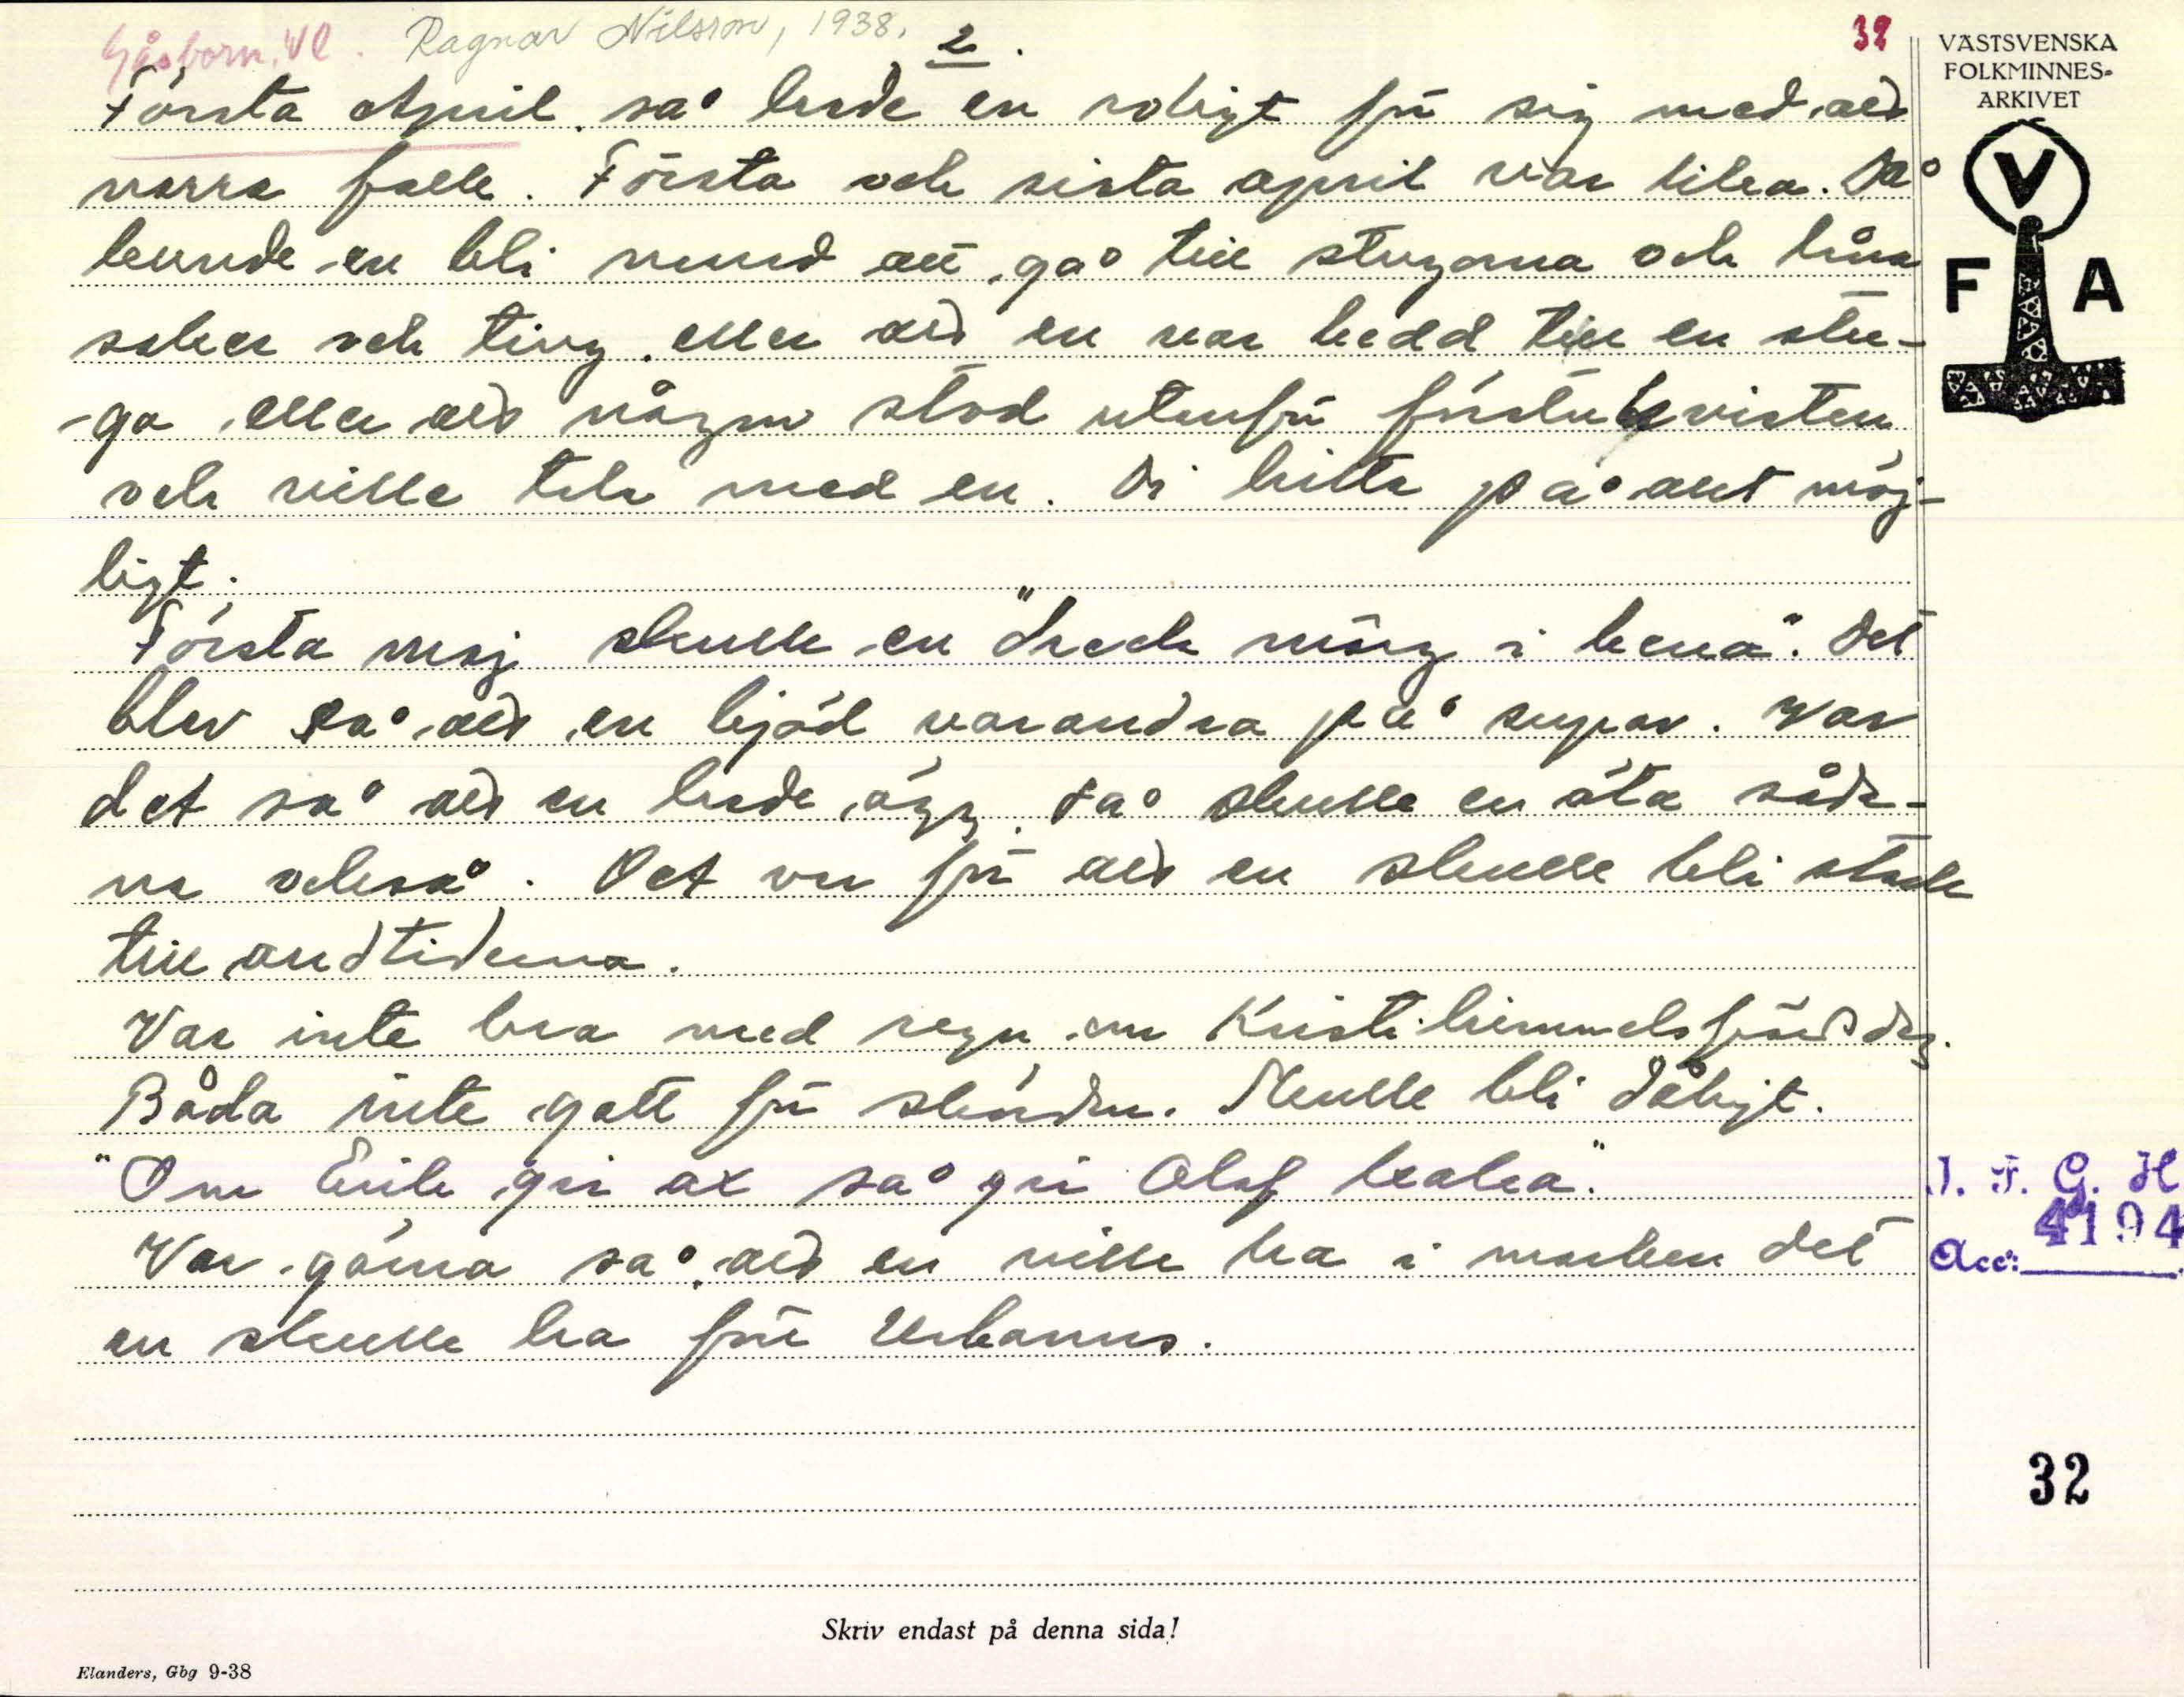 Gåsborn, Vl. Ragnar Nilsson, 1938. 2. 32
VÄSTSVENSKA
FOLKMINNES-
ARKIVET
V
F A
Första April så hade en roligt för sig med att
narra folk. Första och sista april var lika. Då
kunde en bli narrad att gå till stugorna och låna
saker och ting, eller att en var bedd till en stu-
-ga, eller att någon stod utanför förstukvisten
och ville tala med en. Di hitta på allt möj-
ligt.
Första maj skulle en "drecka märg i bena". Det
blev så att en bjöd varandra på supar. Var
det så att en hade ägg, så skulle en äta såda-
na också. Det var för att en skulle bli stark
till andtiderna.
Var inte bra med regn om Kristihimmelsfärdsdag.
Båda inte gott för skörden. Skulle bli dåligt.
"Om Erik ger ax så ger Olof kaka."
Var gärna så att en ville ha i marken det
en skulle ha före Urbanus.
I. F. G. H.
Acc: 4194
32
Skriv endast på denna sida!
Elanders, Gbg 9-38